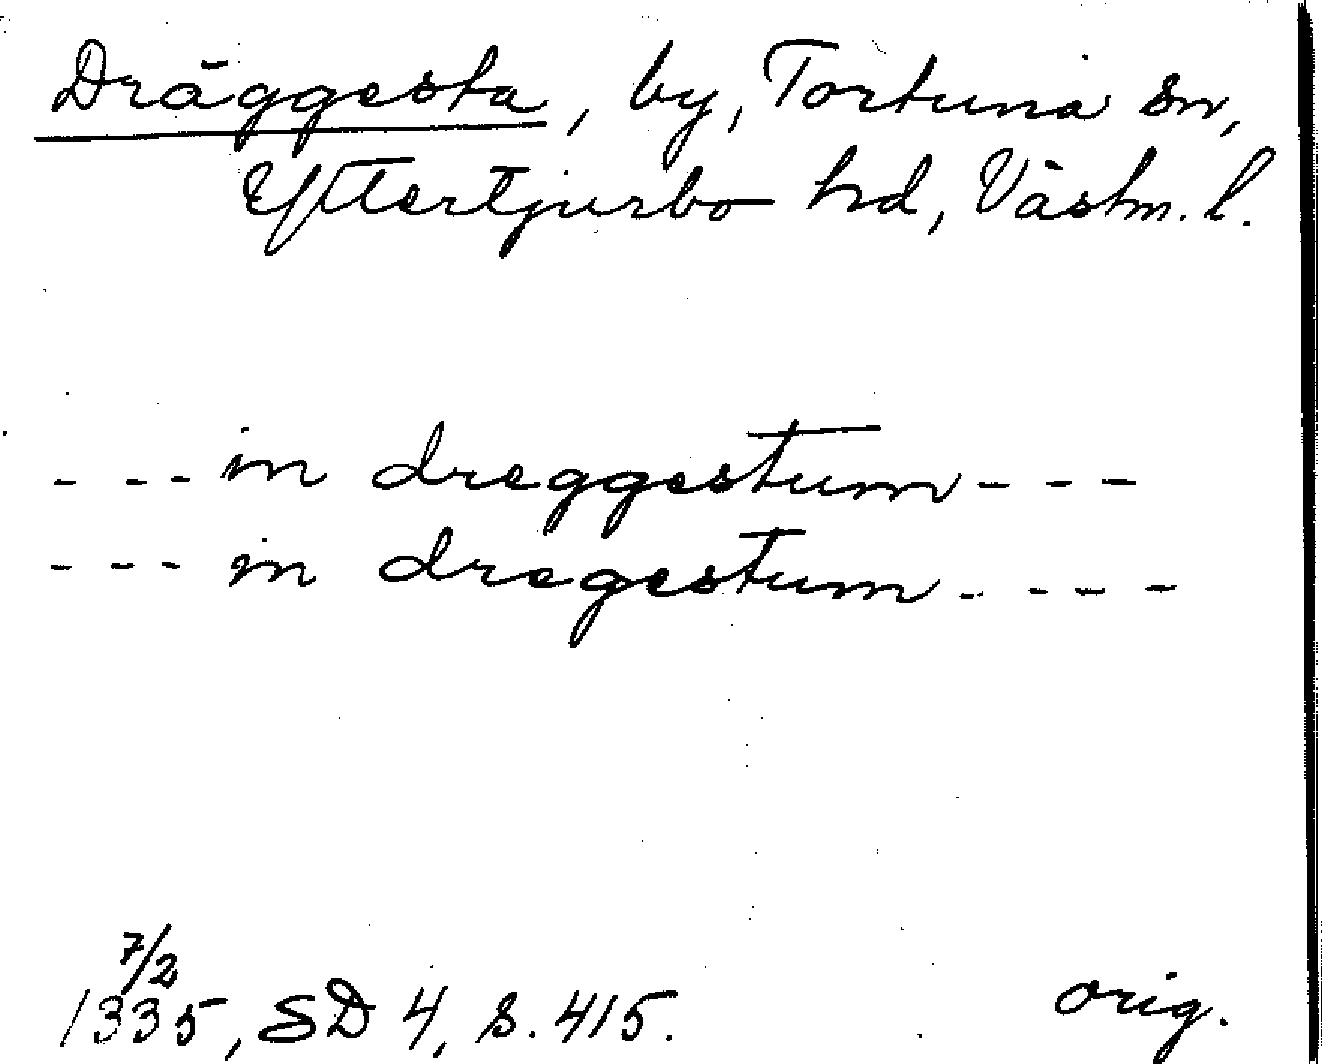 Dräggesta, by, Tortuna sn,
Yttertjurbo hd, Västm. l.
- - - in dreggestum - - -
- - - in dregestum - - - -
7/2
1335, SD 4, s. 415. orig.